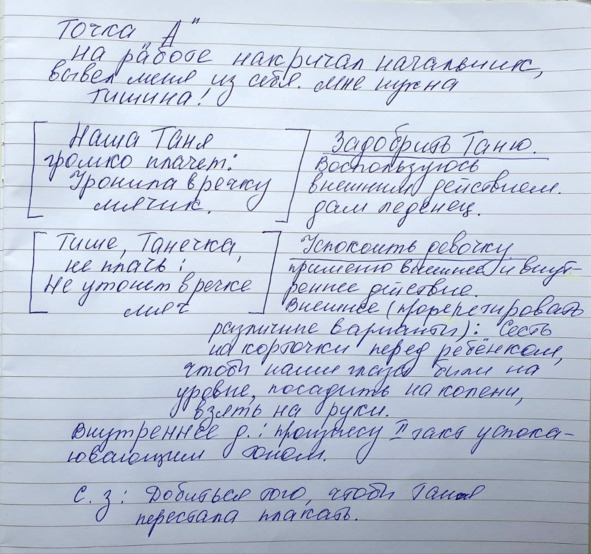 Точка "А"
на работе накричал начальник,
вывел меня из себя. мне нужна
тишина!
Наша Таня
громко плачет:
Уронила в речку
мячик.
Задобрить Таню.
Воспользуюсь
внешним действием.
дам леденец.
Тише, Танечка,
не плачь:
Не утонет в речке
мяч
Успокоить девочку
применю внешнее и внут-
реннее действие.
Внешнее (прорепетировать
различные варианты): Сесть
на корточки перед ребёнком,
чтобы наши глаза были на
уровне, посадить на колени,
взять на руки.
Внутреннее д.: произнесу II такт успока-
ювающим тоном.
С.з: Добиться того, чтобы Таня
перестала плакать.